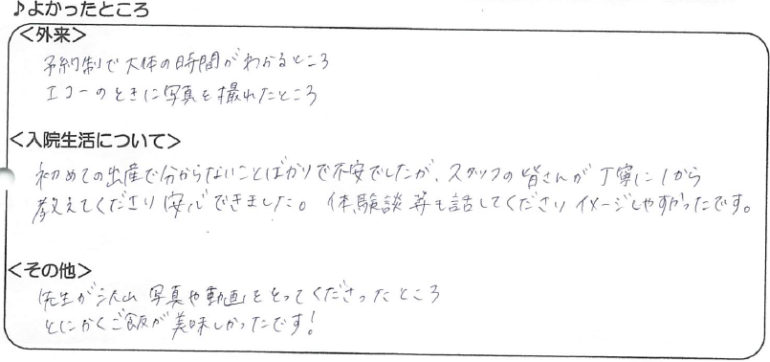 ♪よかったところ
＜外来＞
予約制で大体の時間がわかるところ
エコーのときに写真を撮れたところ
＜入院生活について＞
初めての出産で分からないことばかりで不安でしたが、スタッフの皆さんが丁寧に1から
教えてくださり安心できました。体験談等も話してくださりイメージしやすかったです。
＜その他＞
先生が沢山写真や動画をとってくださったところ
とにかくご飯が美味しかったです！